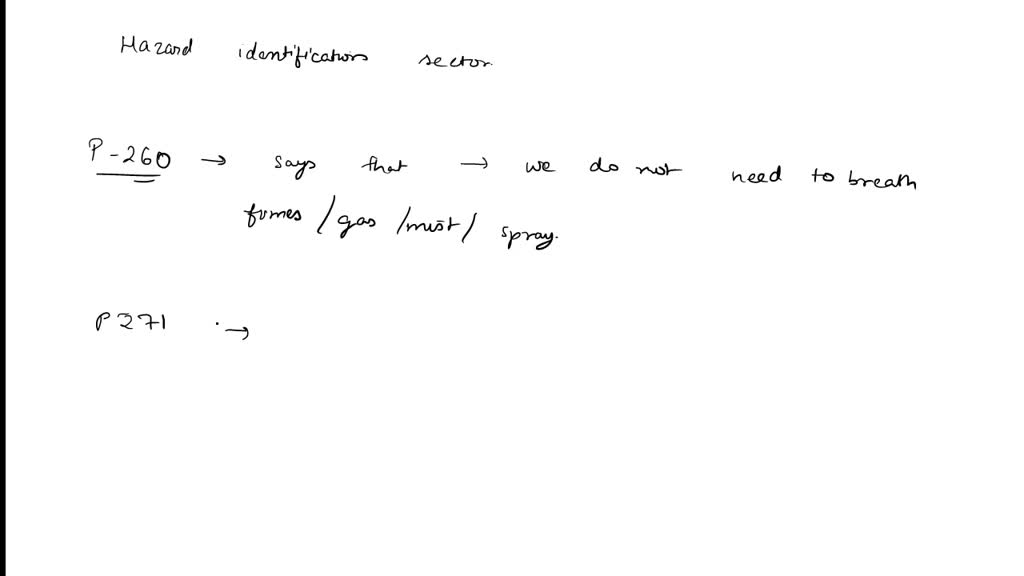 Hazard identification sector.
P-260 → says that → we do not need to breath
fumes / gas / mist / spray.
P271 →